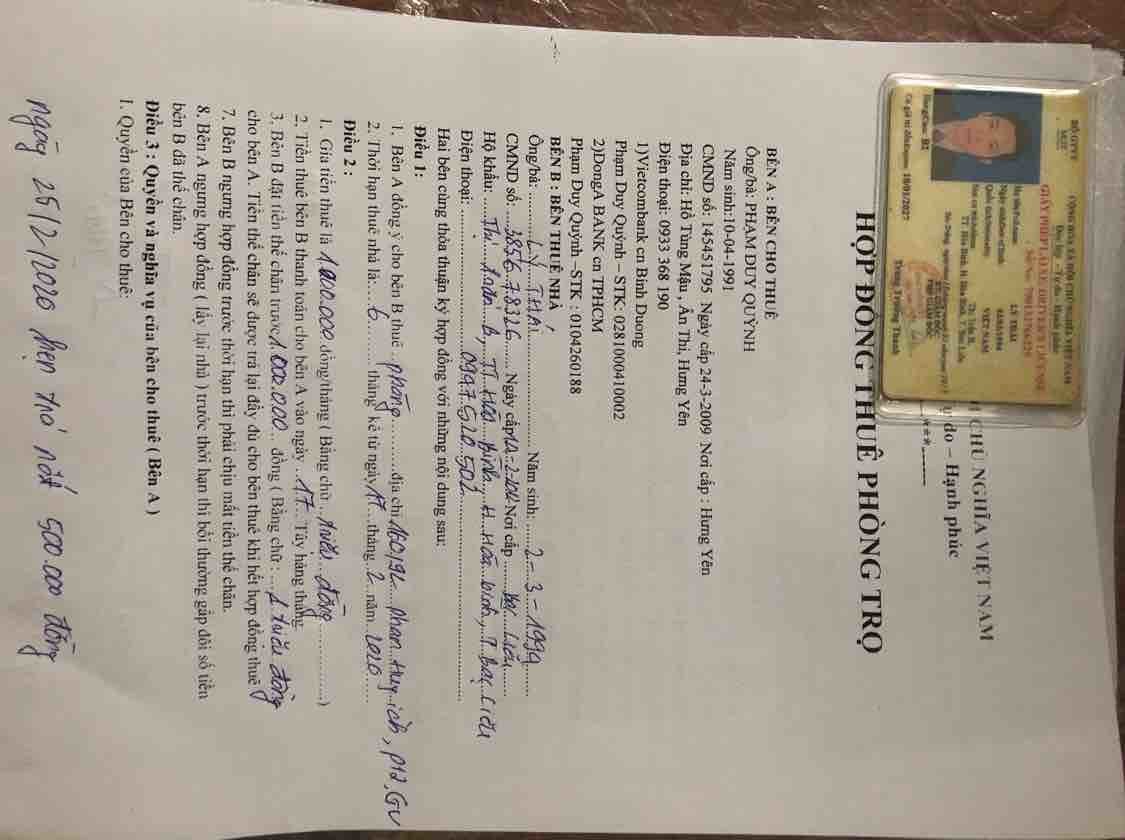 CỘNG HÒA XÃ HỘI CHỦ NGHĨA VIỆT NAM
Độc lập - Tự do - Hạnh phúc
GIẤY PHÉP LÁI XE/DRIVER'S LICENSE
LÝ THÁI
VIỆT NAM
18/01/2027
CHỦ NGHĨA VIỆT NAM
do – Hạnh phúc
HỢP ĐỒNG THUÊ PHÒNG TRỌ
BÊN A : BÊN CHO THUÊ
Ông/bà: PHẠM DUY QUỲNH
Năm sinh:10-04-1991
CMND số: 145451795 Ngày cấp 24-3-2009 Nơi cấp : Hưng Yên
Địa chỉ: Hồ Tùng Mậu , Ân Thi, Hưng Yên
Điện thoại: 0933 368 190
1)Vietcombank cn Bình Duong
Phạm Duy Quỳnh – STK: 0281000410002
2)DongA BANK cn TPHCM
Phạm Duy Quỳnh –STK : 0104260188
BÊN B : BÊN THUÊ NHÀ
Ông/bà: LÝ THÁI Năm sinh: 2-3-1994
CMND số: 385678326 Ngày cấp Nơi cấp Bạc Liêu
Hộ khẩu: Thị Trấn B, TT Hòa Bình, H Hòa bình, T Bạc Liêu
Điện thoại: 0947.520.502
Hai bên cùng thỏa thuận ký hợp đồng với những nội dung sau:
Điều 1:
1. Bên A đồng ý cho bên B thuê phòng địa chỉ 160/9L phan Huy ích, P12, GV
2. Thời hạn thuê nhà là: 6 tháng kể từ ngày 17 tháng 2 năm 2020
Điều 2 :
1. Gía tiền thuê là 1000.000 đồng/tháng ( Bằng chữ : triệu đồng )
2. Tiền thuê bên B thanh toán cho bên A vào ngày 17 Tây hàng tháng
3. Bên B đặt tiền thế chân trước 1.000.000 đồng ( Bằng chữ : 1 triệu đồng
cho bên A. Tiền thế chân sẽ được trả lại đầy đủ cho bên thuê khi hết hợp đồng thuê )
7. Bên B ngưng hợp đồng trước thời hạn thì phải chịu mất tiền thế chân.
8. Bên A ngưng hợp đồng ( lấy lại nhà ) trước thời hạn thì bồi thường gấp đôi số tiền
bên B đã thế chân.
Điều 3 : Quyền và nghĩa vụ của bên cho thuê ( Bên A )
1. Quyền của Bên cho thuê:
ngày 25/2/2020 hẹn trả nốt 500.000 đồng